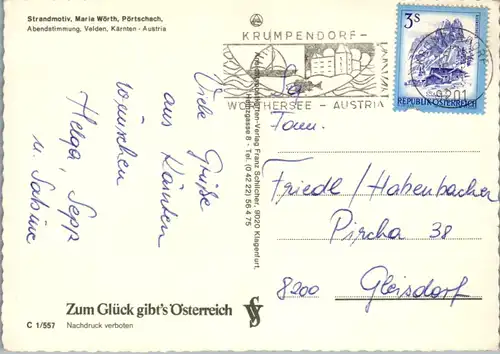 Strandmotiv, Maria Wörth, Pörtschach,
Abendstimmung, Velden, Kärnten - Austria
Viele Grüße
aus Kärnten
wünschen
Helga, Sepp
u. Sabine
Zum Glück gibt's Österreich
C 1/557 Nachdruck verboten
Kunstpostkarten-Verlag Franz Schilcher, 9020 Klagenfurt,
gasse 8 - Tel. (0 42 22) 56 4 75
KRUMPENDORF -
WÖRTHERSEE - AUSTRIA
9201
3 S
REPUBLIK ÖSTERREICH
Fam.
Friedl / Habenbacher
Pircha 38
8200 Gleisdorf